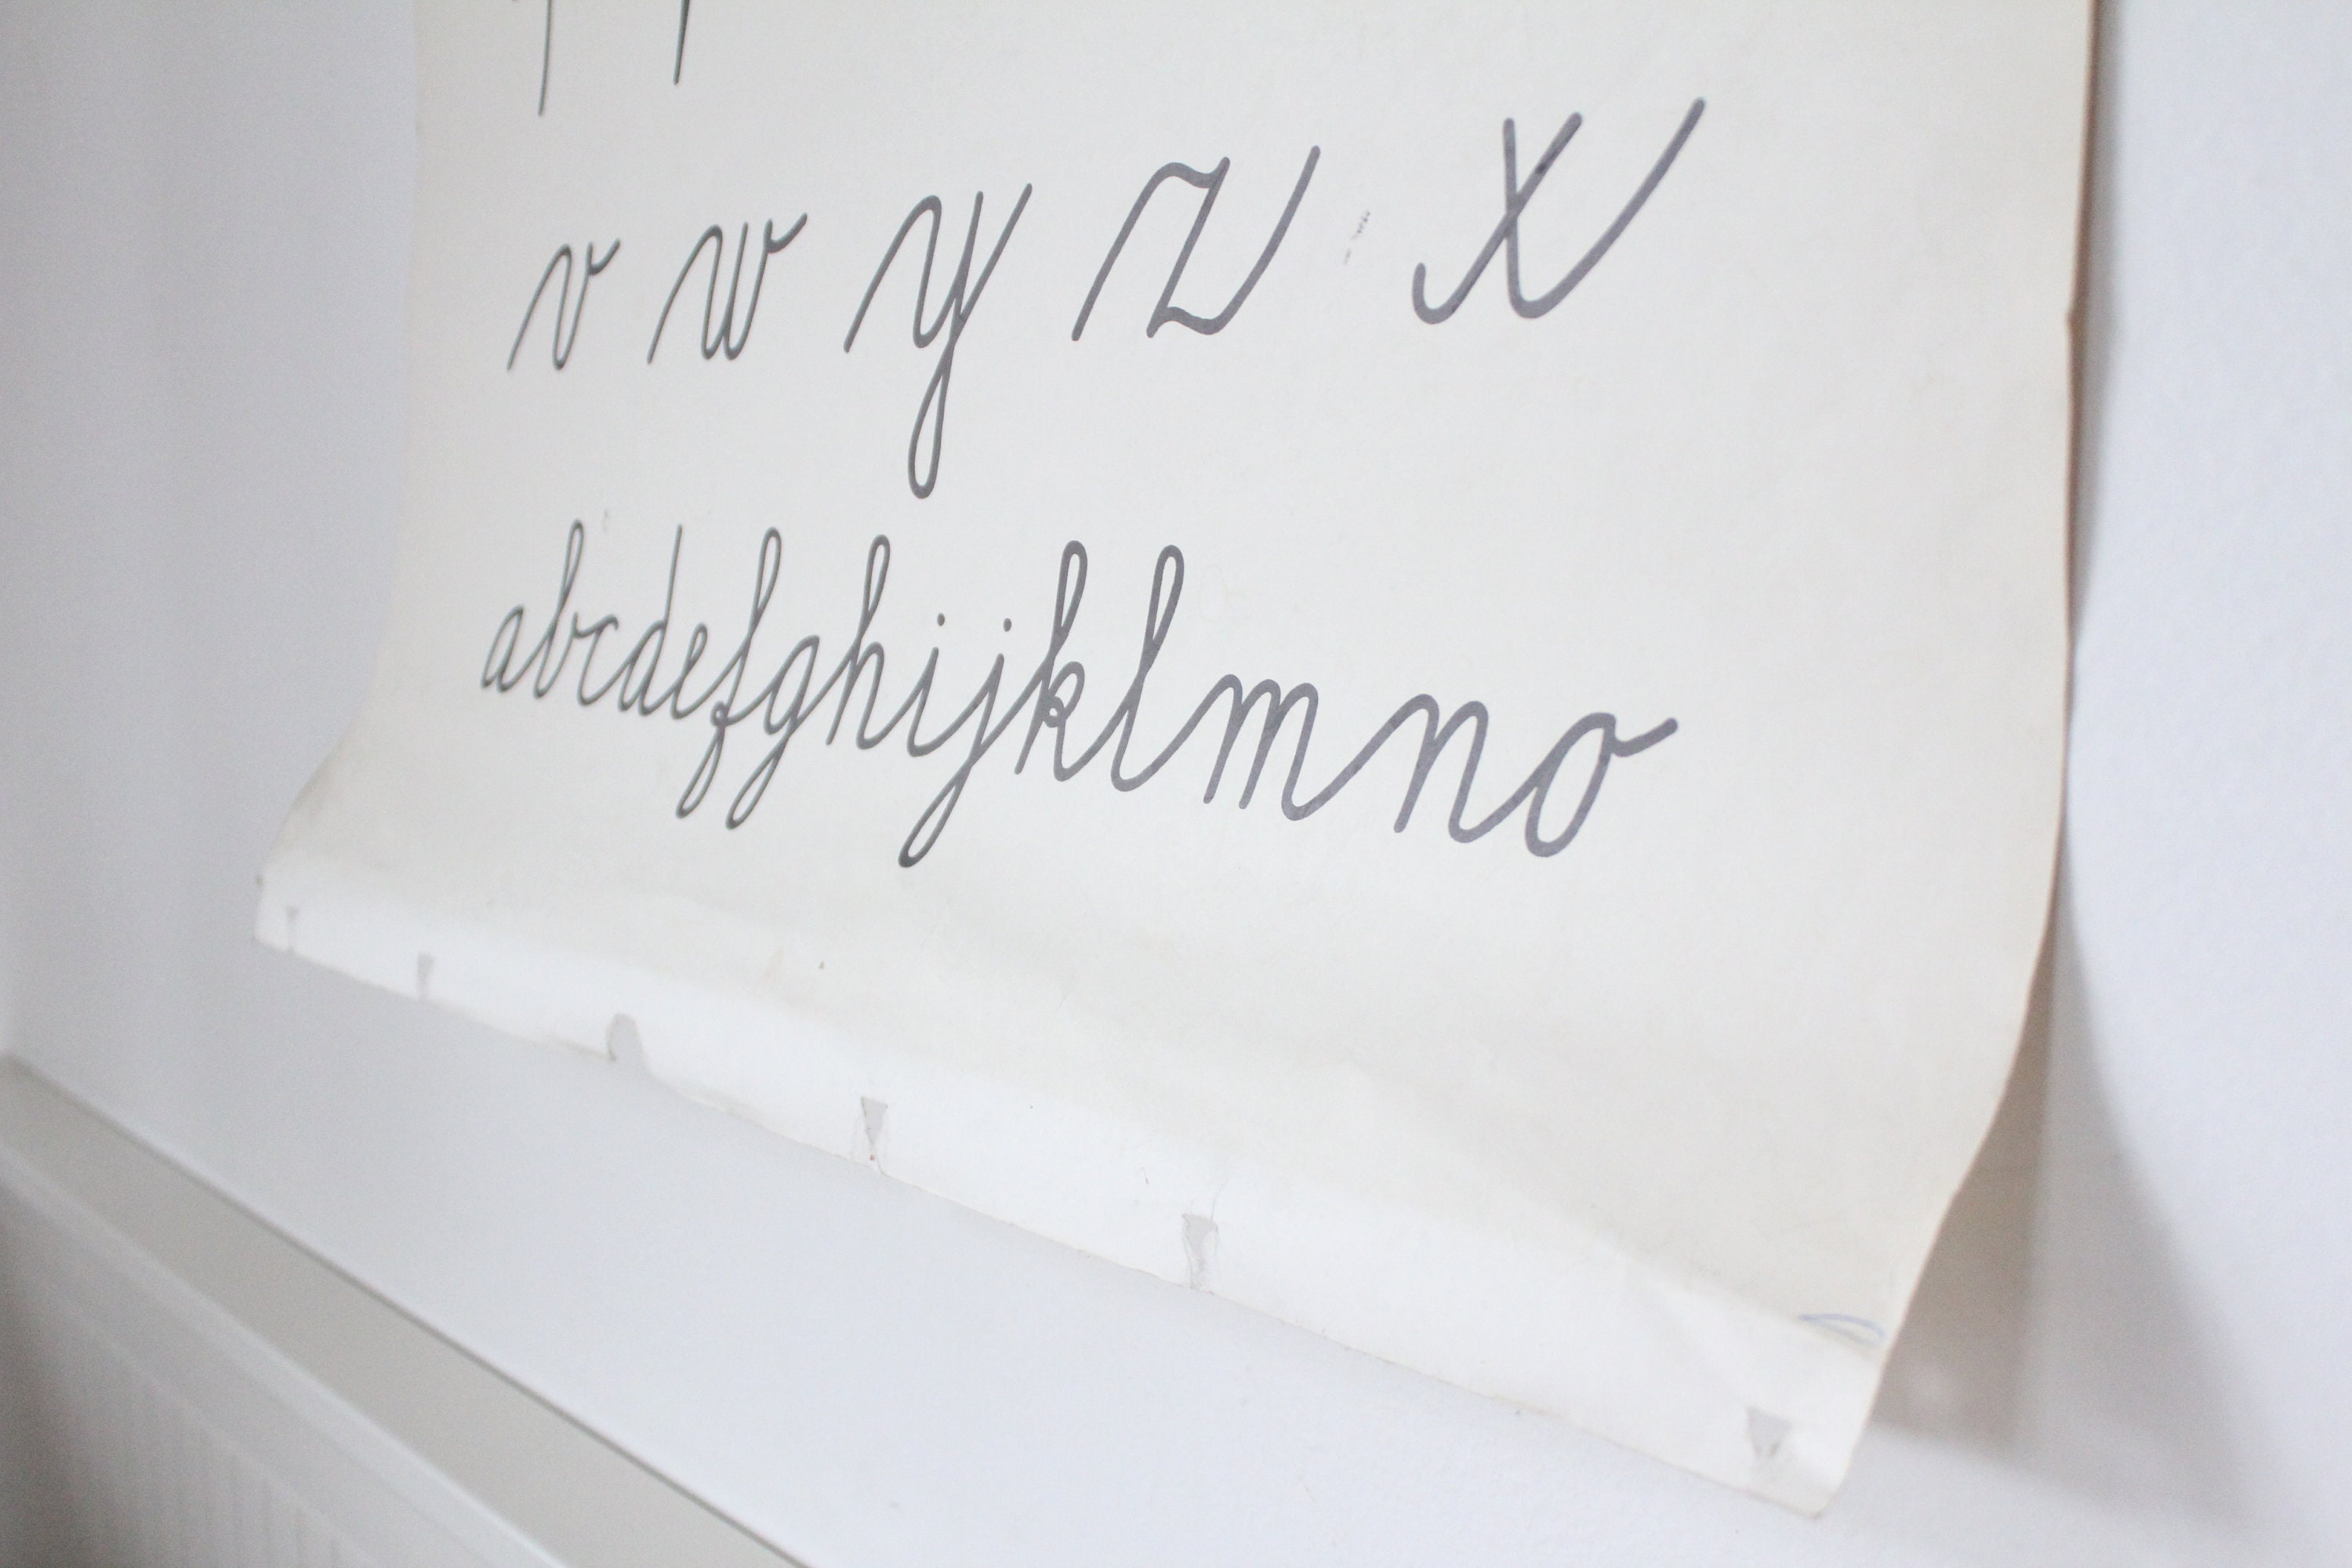 v w y z x
abcdefghijklmno